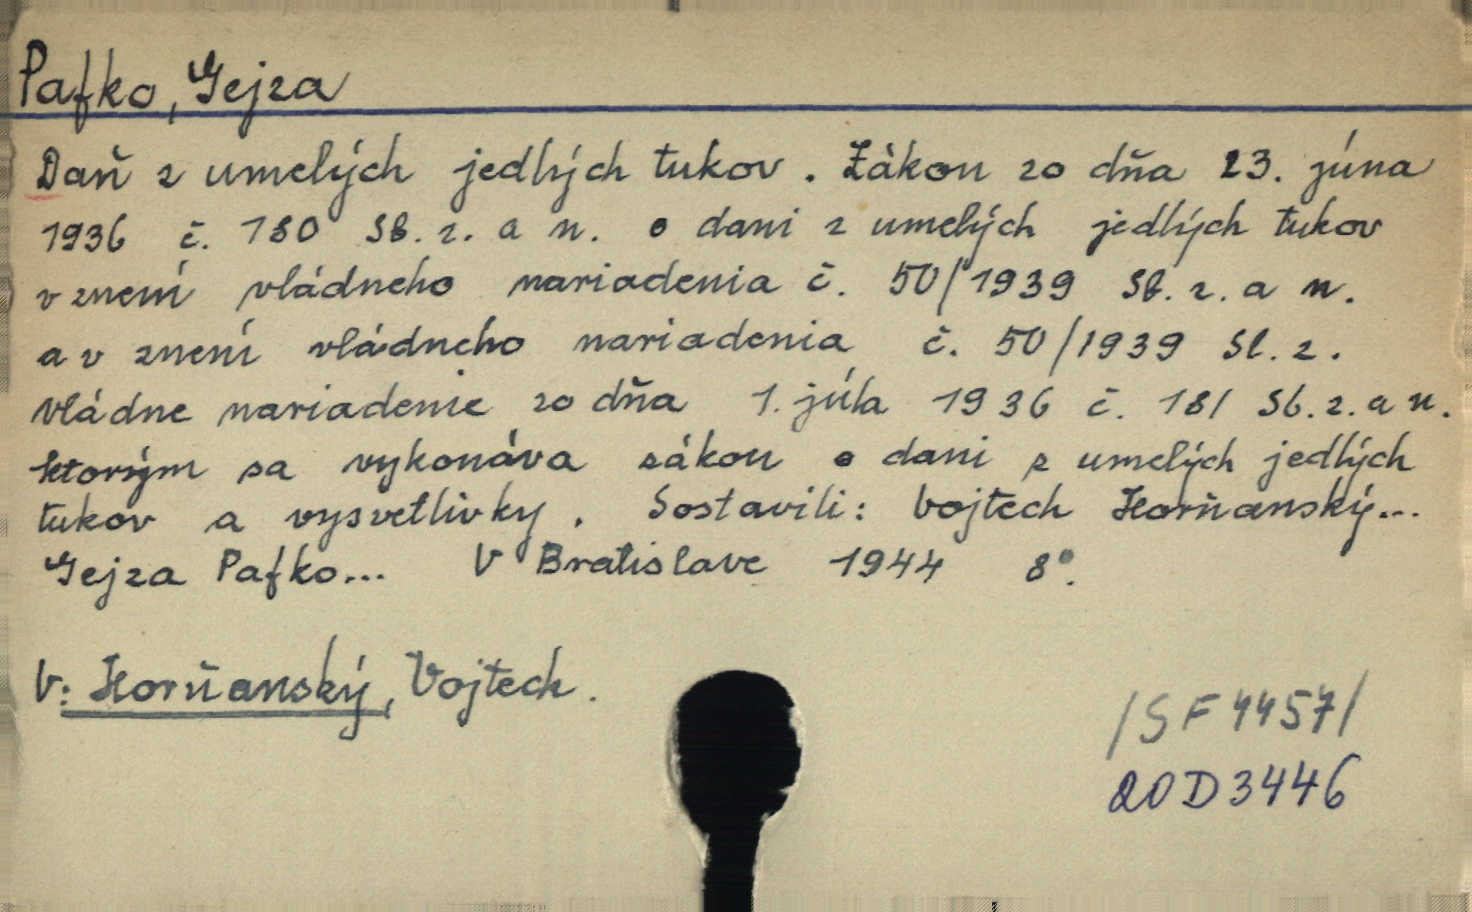 Pafko, Gejza
Daň z umelých jedlých tukov. Zákon zo dňa 23. júna
1936 č. 180 Sb. z. a n. o dani z umelých jedlých tukov
v znení vládneho nariadenia č. 50/1939 Sb. z. a n.
a v znení vládneho nariadenia č. 50/1939 Sl. z.
vládne nariadenie zo dňa 1. júla 1936 č. 181 Sb. z. a n.
ktorým sa vykonáva zákon o dani z umelých jedlých
tukov a vysvetlivky. Sostavili: Vojtech Horňanský...
Gejza Pafko... V Bratislave 1944 8°.
V: Horňanský, Vojtech.
/SF 4457/
20D3446